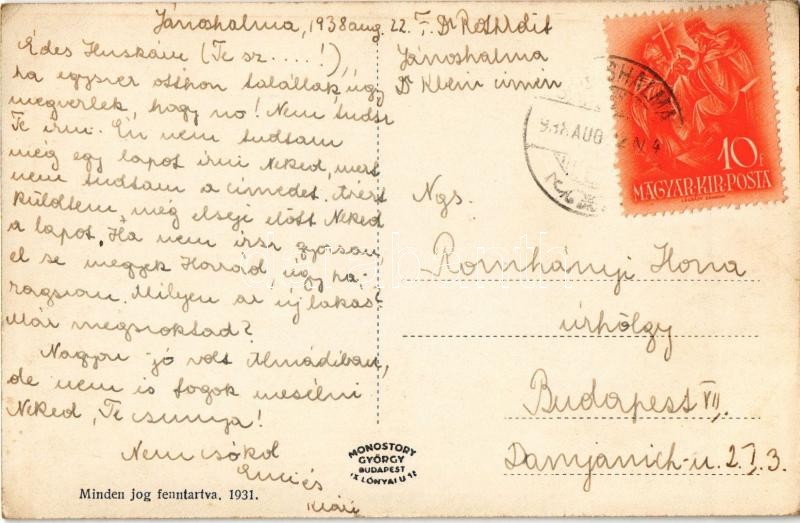 Jánoshalma, 1938 aug. 22.
Édes Iluskám (Te sz....!),
ha egyszer otthon talállak, úgy
megverlek, hogy no! Nem tudsz
Te irni. Én nem tudtam
még egy lapot irni Neked, mert
nem tudtam a címedet. Azért
küldtem még elseje előtt Neked
a lapot. Ha nem irsz gyorsan
el se megyek Hozzád úgy ha-
ragszom. Milyen az új lakás?
Már megszoktad?
Nagyon jó volt Almádiban,
de nem is fogok mesélni
Neked, Te csunya!
Nem csókol
Enci és
F. Dr Roth Edit
Jánoshalma
Dr Klein címén
JÁNOSHALMA
938 AUG
10f
MAGYAR·KIR·POSTA
Ngs.
Romhányi Ilona
úrhölgy
Budapest VII.
Damjanich-u. 2. I. 3.
MONOSTORY
GYÖRGY
BUDAPEST
IX. LÓNYAI U 18
Minden jog fenntartva, 1931.